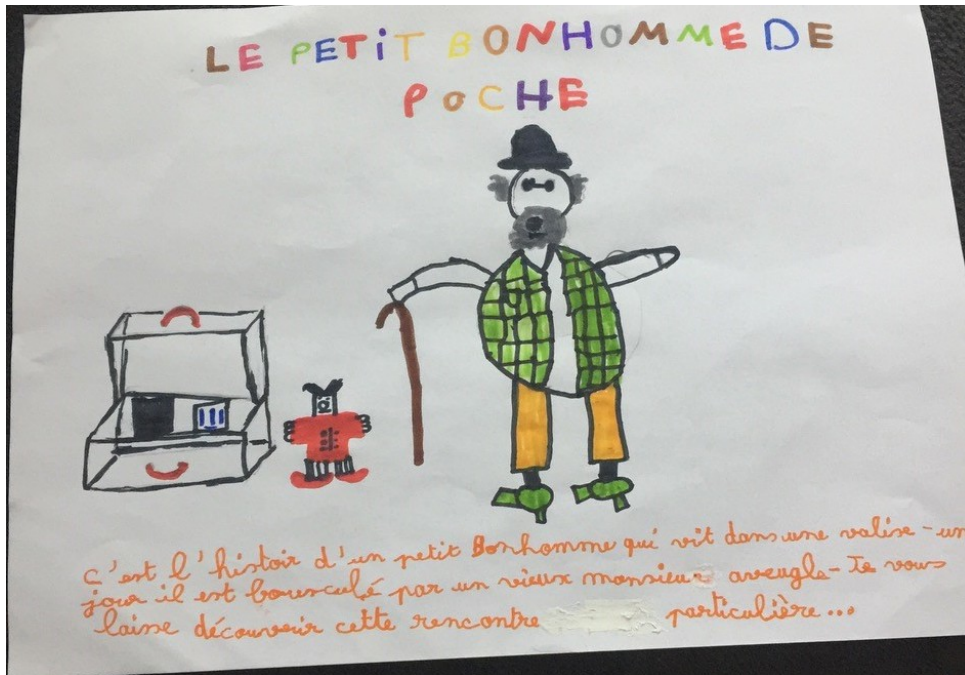 LE PETIT BONHOMME DE
POCHE
C'est l'histoir d'un petit Bonhomme qui vit dans une valise - un
jour il est bousculé par un vieux monsieur aveugle - Je vous
laisse découvrir cette rencontre particulière...